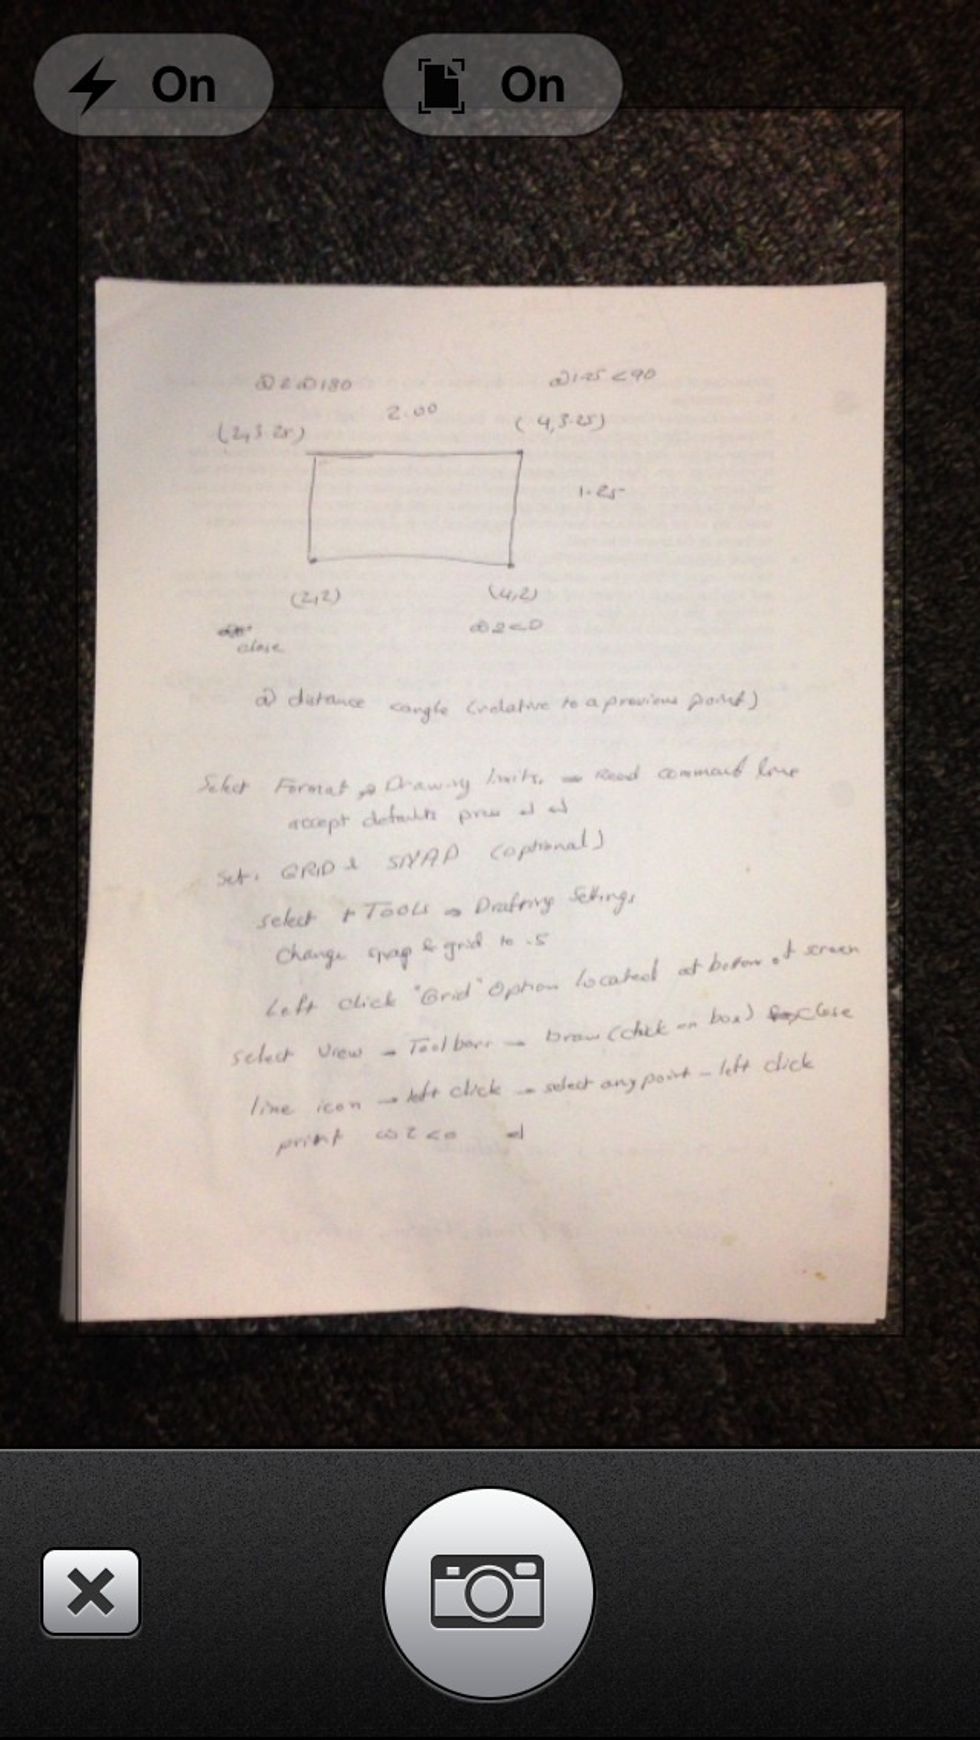 On
On
@ 2 @ 180
@ 1.25 < 90
2.00
(2,3.25)
(4,3.25)
1.25
(2,2)
(4,2)
@ 2 < 0
close
@ distance <angle (relative to a previous point)
Select Format → Drawing limits, → Read command line
accept defaults press ↲ ↲
Set. GRID & SNAP (optional)
select + TOOLS → Drafting Settings
Change snap & grid to .5
Left click "Grid" Option located at bottom of screen
select View → Toolbars → Draw (click on box) close
line icon → left click → select any point - left click
print @ 2 < 0 ↲